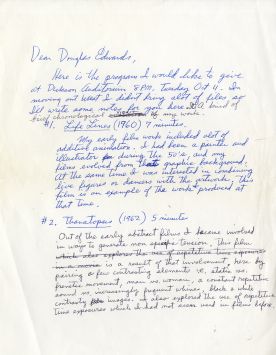 Dear Douglas Edwards,
Here is the program I would like to give
at Dickson Auditorium 8 P.M. Tuesday Oct 11. In
moving out West I didn't bring alot of files so
let write some notes for you here. A kind of
brief chronological of my work.
#1. Life Lines (1960) 7 minutes.
My early film work included alot of
additive animation. I had been a painter and
illustrator during the 50's, and my
films evolved from that graphic background.
At the same time I was interested in combining
live figures or dancers with the artwork. This
film is an example of the work produced at
that time.
#2. Thanatopsis (1962) 5 minutes
Out of the early abstract films I became involved
in ways to generate non specific tension. This film
which also explores the use of repetitive time exposures
in a movie is a result of that involvement, here by
pairing a few contrasting elements i.e., static vs.
frenetic movement, man vs. woman, a constant repetitive
sound vs. increasingly frequent whine, black & white
contrasty images. It also explored the use of repetitive
time exposures which I had not seen used in films before.